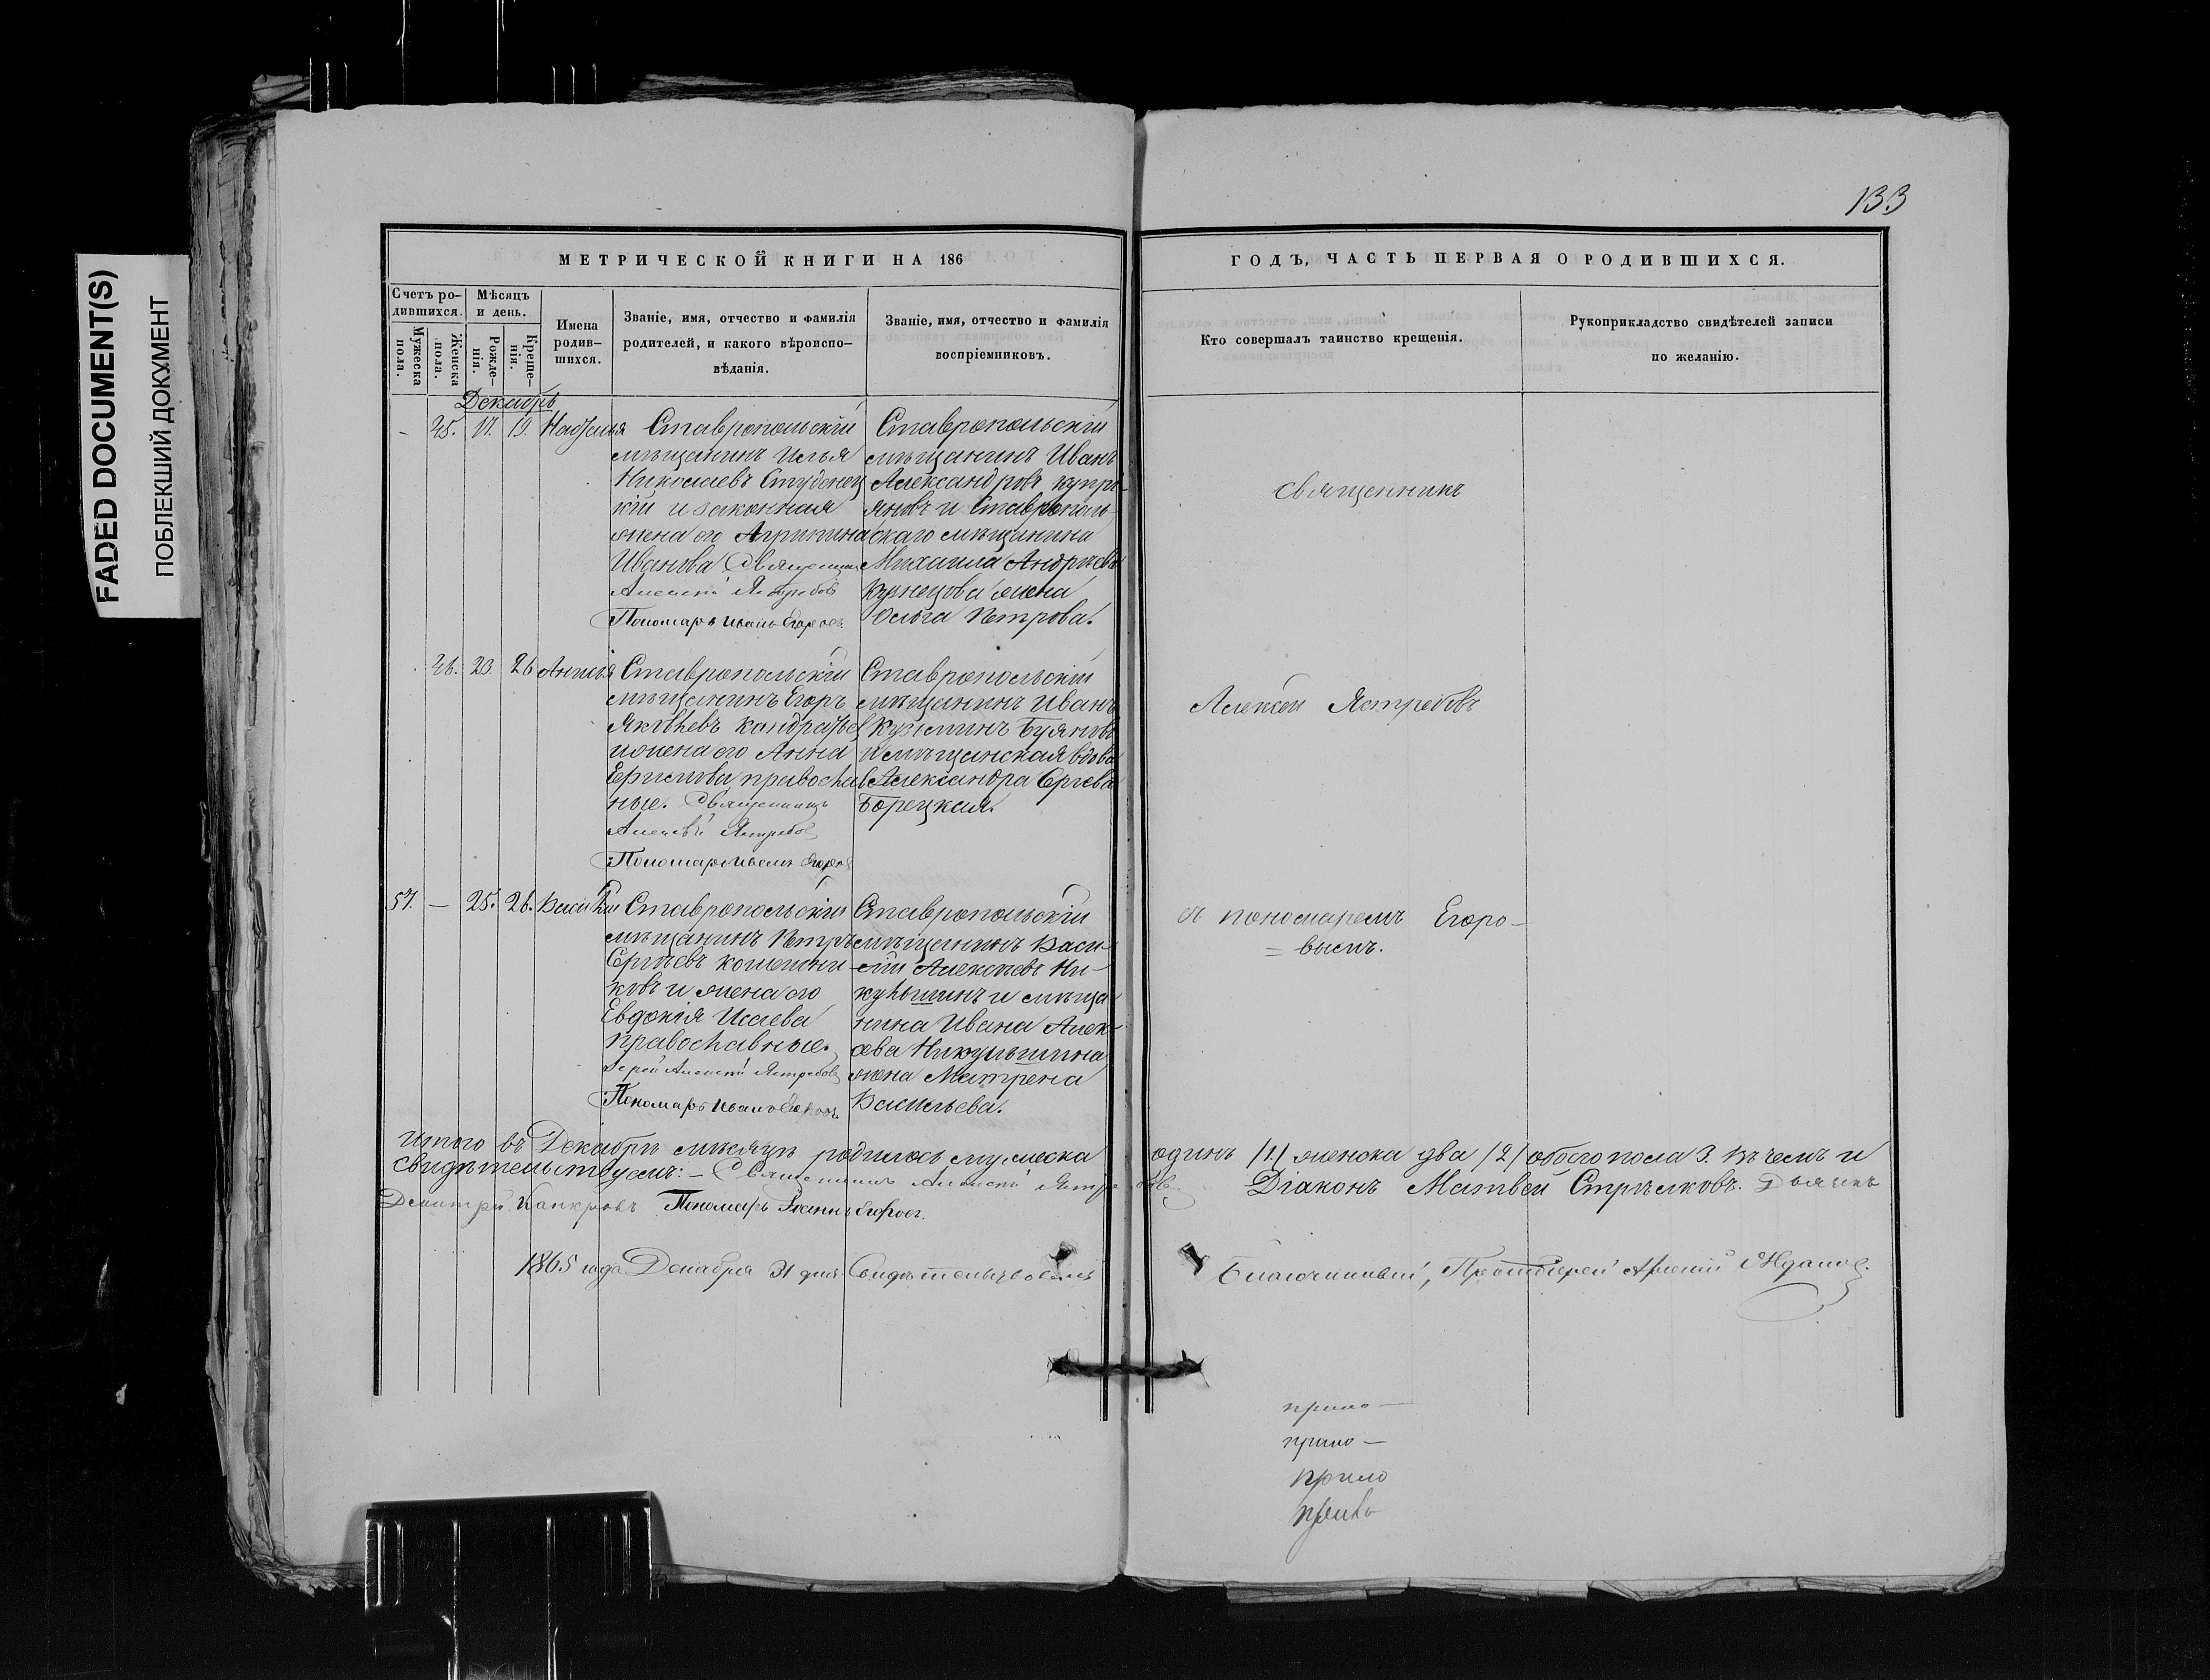 FADED DOCUMENT(S)
ПОБЛЕКШИЙ ДОКУМЕНТ
133
МЕТРИЧЕСКОЙ КНИГИ НА 186
ГОДЪ, ЧАСТЬ ПЕРВАЯ О РОДИВШИХСЯ.
Счетъ ро-
дившихся.
Мужеска
пола.
Женска
пола.
Мѣсяцъ
и день.
Рожде-
нія.
Креще-
нія.
Имена
родив-
шихся.
Званіе, имя, отчество и фамилія
родителей, и какого вѣроиспо-
вѣданія.
Званіе, имя, отчество и фамилія
воспріемниковъ.
Кто совершалъ таинство крещенія.
Рукоприкладство свидѣтелей записи
по желанію.
Декабрь
- 45. 17. 19.
Ставропольскій
мѣщанинъ Илья
Николаевъ Студенец
кій и законная
жена его Агрипина
Иванова Священникъ
Алексѣй Ястребовъ
Пономарь Иванъ Егоровъ.
Ставропольскій
мѣщанинъ Иванъ
Александровъ Купрі-
яновъ и Ставрополь-
скаго мѣщанина
Михаила Андреева
Кузнецова жена
Ольга Петрова.
46. 23. 26
Ставропольскій
мѣщанинъ Егоръ
Яковлевъ Кондратьев
и жена его Анна
православ
ные. Священникъ
Алексѣй Ястребов
Пономарь Иванъ Егоров
Ставропольскій
мѣщанинъ Иванъ
Кузьминъ Буяновъ
и мѣщанская вдова
Александра
Борецкая.
57. — 25. 26. Василій
Ставропольскій
мѣщанинъ Петръ
Сергѣевъ
ковъ и жена его
Евдокія Исаева
православные.
Іерей Алексѣй Ястребовъ
Пономарь Иванъ Егоровъ.
Ставропольскій
мѣщанинъ Васи-
лій Алексѣевъ Ни-
кульшинъ и мѣща
нина Ивана Алек-
сева Никульшина
жена Матрена
Васильева.
Священникъ
Алексѣй Ястребовъ
съ пономаремъ Егоро-
= вымъ.
Итого въ Декабрѣ мѣсяцѣ родилось мужеска одинъ /1/ женска два /2/ обоего пола 3. въ чемъ и
свидѣтельствуемъ: – Священникъ Алексѣй Ястребовъ Діаконъ Матвей Стрѣлковъ. Дьячекъ
Дмитрій Пономарь Іоаннъ Егоровъ.
1865 года Декабря 31 дня Свидѣтельствовалъ Благочинный, Протоіерей Арсеній Ждановъ.